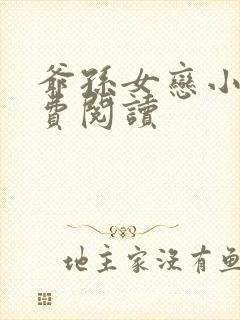 爺孫女戀小
費閱讀
地主家沒有魚